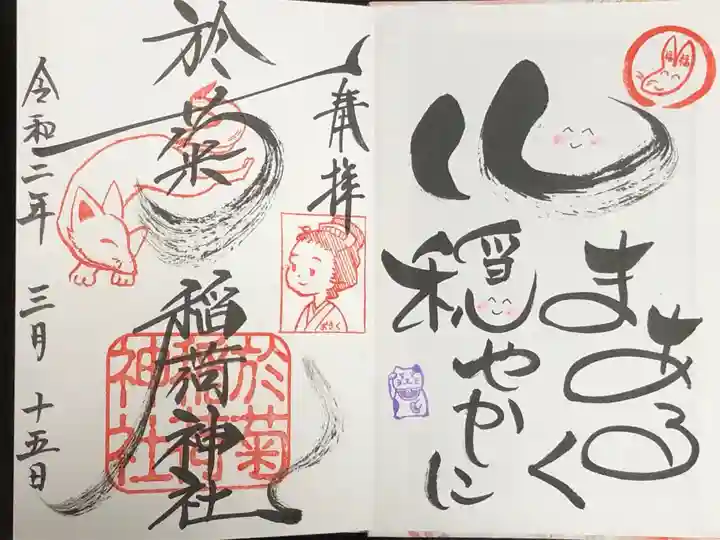 心
まあるく
穏やかに
奉拝
おきく
於菊稲荷神社
於菊
稲荷
神社
令和二年 三月 十五日